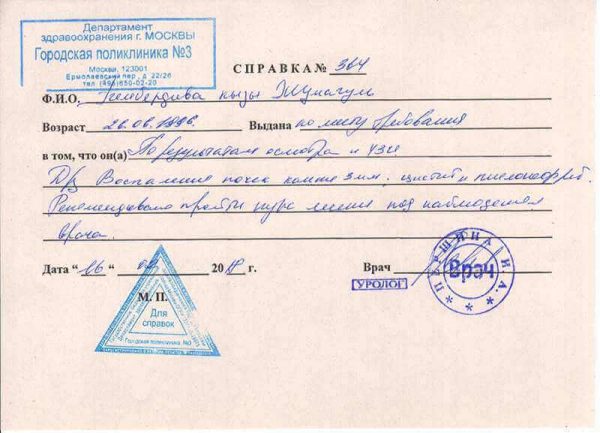 Департамент
здравоохранения г. МОСКВЫ
Городская поликлиника №3
Москва, 123001
Ермолаевский пер., д. 22/26
тел (495)650-02-20
СПРАВКА № 364
Ф.И.О. кызы
Возраст 26.06.1996. Выдана по месту требования
в том, что он(а) По результатам осмотра и УЗИ
Д/з Воспаление почек камни 3мм. цистит и пиелонефрит.
Рекомендовано пройти курс лечения под наблюдением
врача.
Дата "16" 20 г. Врач
УРОЛОГ
ПЕРШИНА И.А.
Врач
М. П.
Для
справок
Городская поликлиника №3